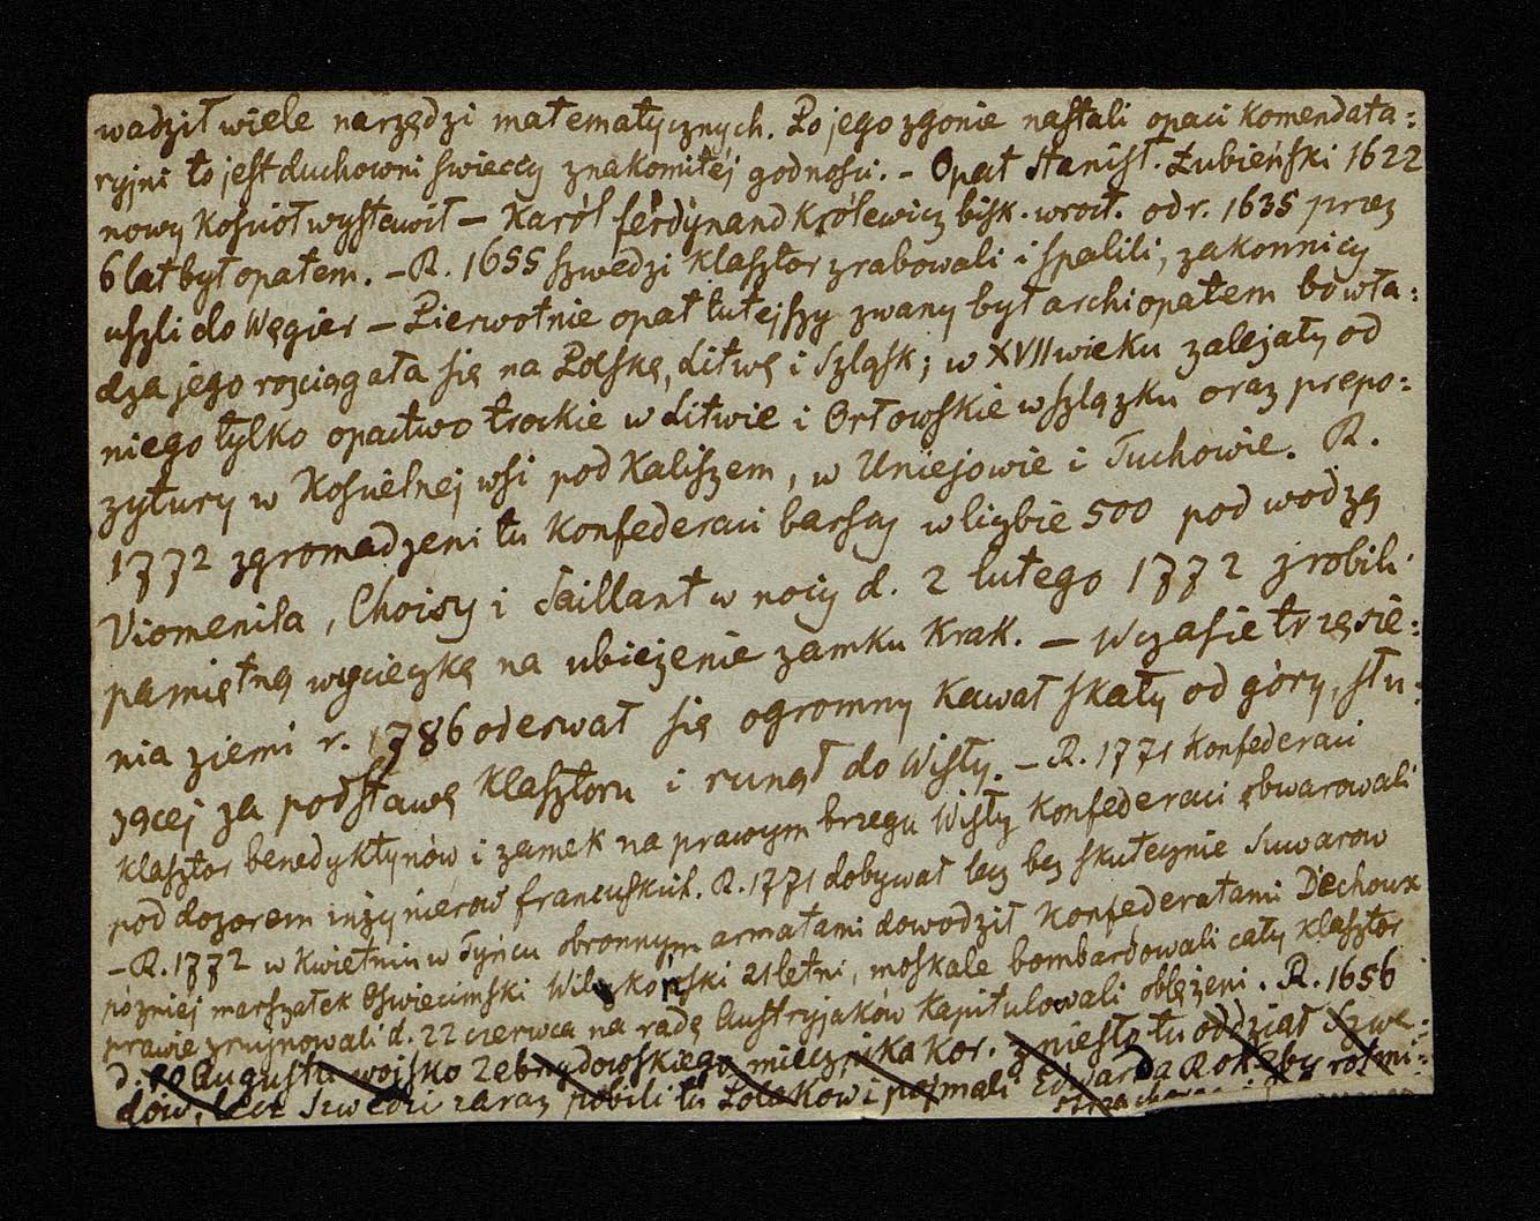 wadził wiele narzędzi matematycznych. Po jego zgonie nastali opaci komendata:
ryjni to jest duchowni swieccy znakomitéj godnosci. - Opat Stanisł. Łubieński 1622
nowy kosciół wystawił - Karól ferdynand królewicz bisk. wrocł. od r. 1635 przez
6 lat był opatem. - R. 1655 szwedzi klasztor zrabowali i spalili, zakonnicy
uszli do Węgier - Pierwotnie opat tutejszy zwany był archiopatem bo wła:
dza jego rozciągała się na Polskę, Litwę i Szląsk; w XVII wieku zależały od
niego tylko opactwo trockie w Litwie i Orłowskie w szlązku oraz prepo:
zytury w Koscielnej wsi pod Kaliszem, w Uniejowie i Tuchowie. R.
1772 zgromadzeni tu Konfederaci barscy w liczbie 500 pod wodzą
Viomenila, Choisy i Saillant w nocy d. 2 lutego 1772 zrobili
pamiętną wycieczkę na ubieżenie zamku Krak. - W czasie trzęsie:
nia ziemi r. 1786 oderwał się ogromny kawał skały od góry, słu:
zącej za podstawę klasztoru i runął do Wisły. - R. 1771 Konfederaci
klasztor benedyktynów i zamek na prawym brzegu Wisły Konfederaci obwarowali
pod dozorem inżynierow francuskich. R. 1771 dobywał lecz bez skutecznie Suwarow
- R. 1772 w kwietniu w Tyńcu obronnym armatami dowodził Konfederatami Déchoux
pózniej marszałek Oswiecimski Wilczkoński 21 letni, moskale bombardowali cały klasztor
prawie zrujnowali d. 22 czerwca na radę Austryjaków kapitulowali oblężeni. R. 1656
d. Augusta wojsko Zebrzydowskiego miecznika kor. zniesło tu oddział Szwe:
dów, lecz Szwedzi zaraz pobili tu Polakow i pojmali Edwarda Rokeby rotmi: